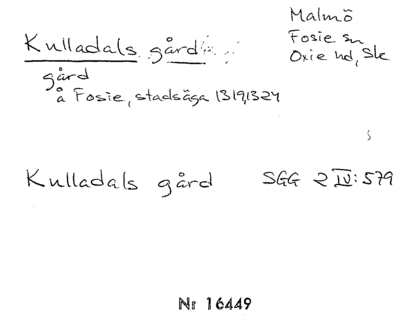 Malmö
Kulladals gård
Fosie sn
Oxie hd, Sk
gård
å Fosie, stadsäga 1319, 1324
Kulladals gård SGG 2 IV: 579
Nr 16449